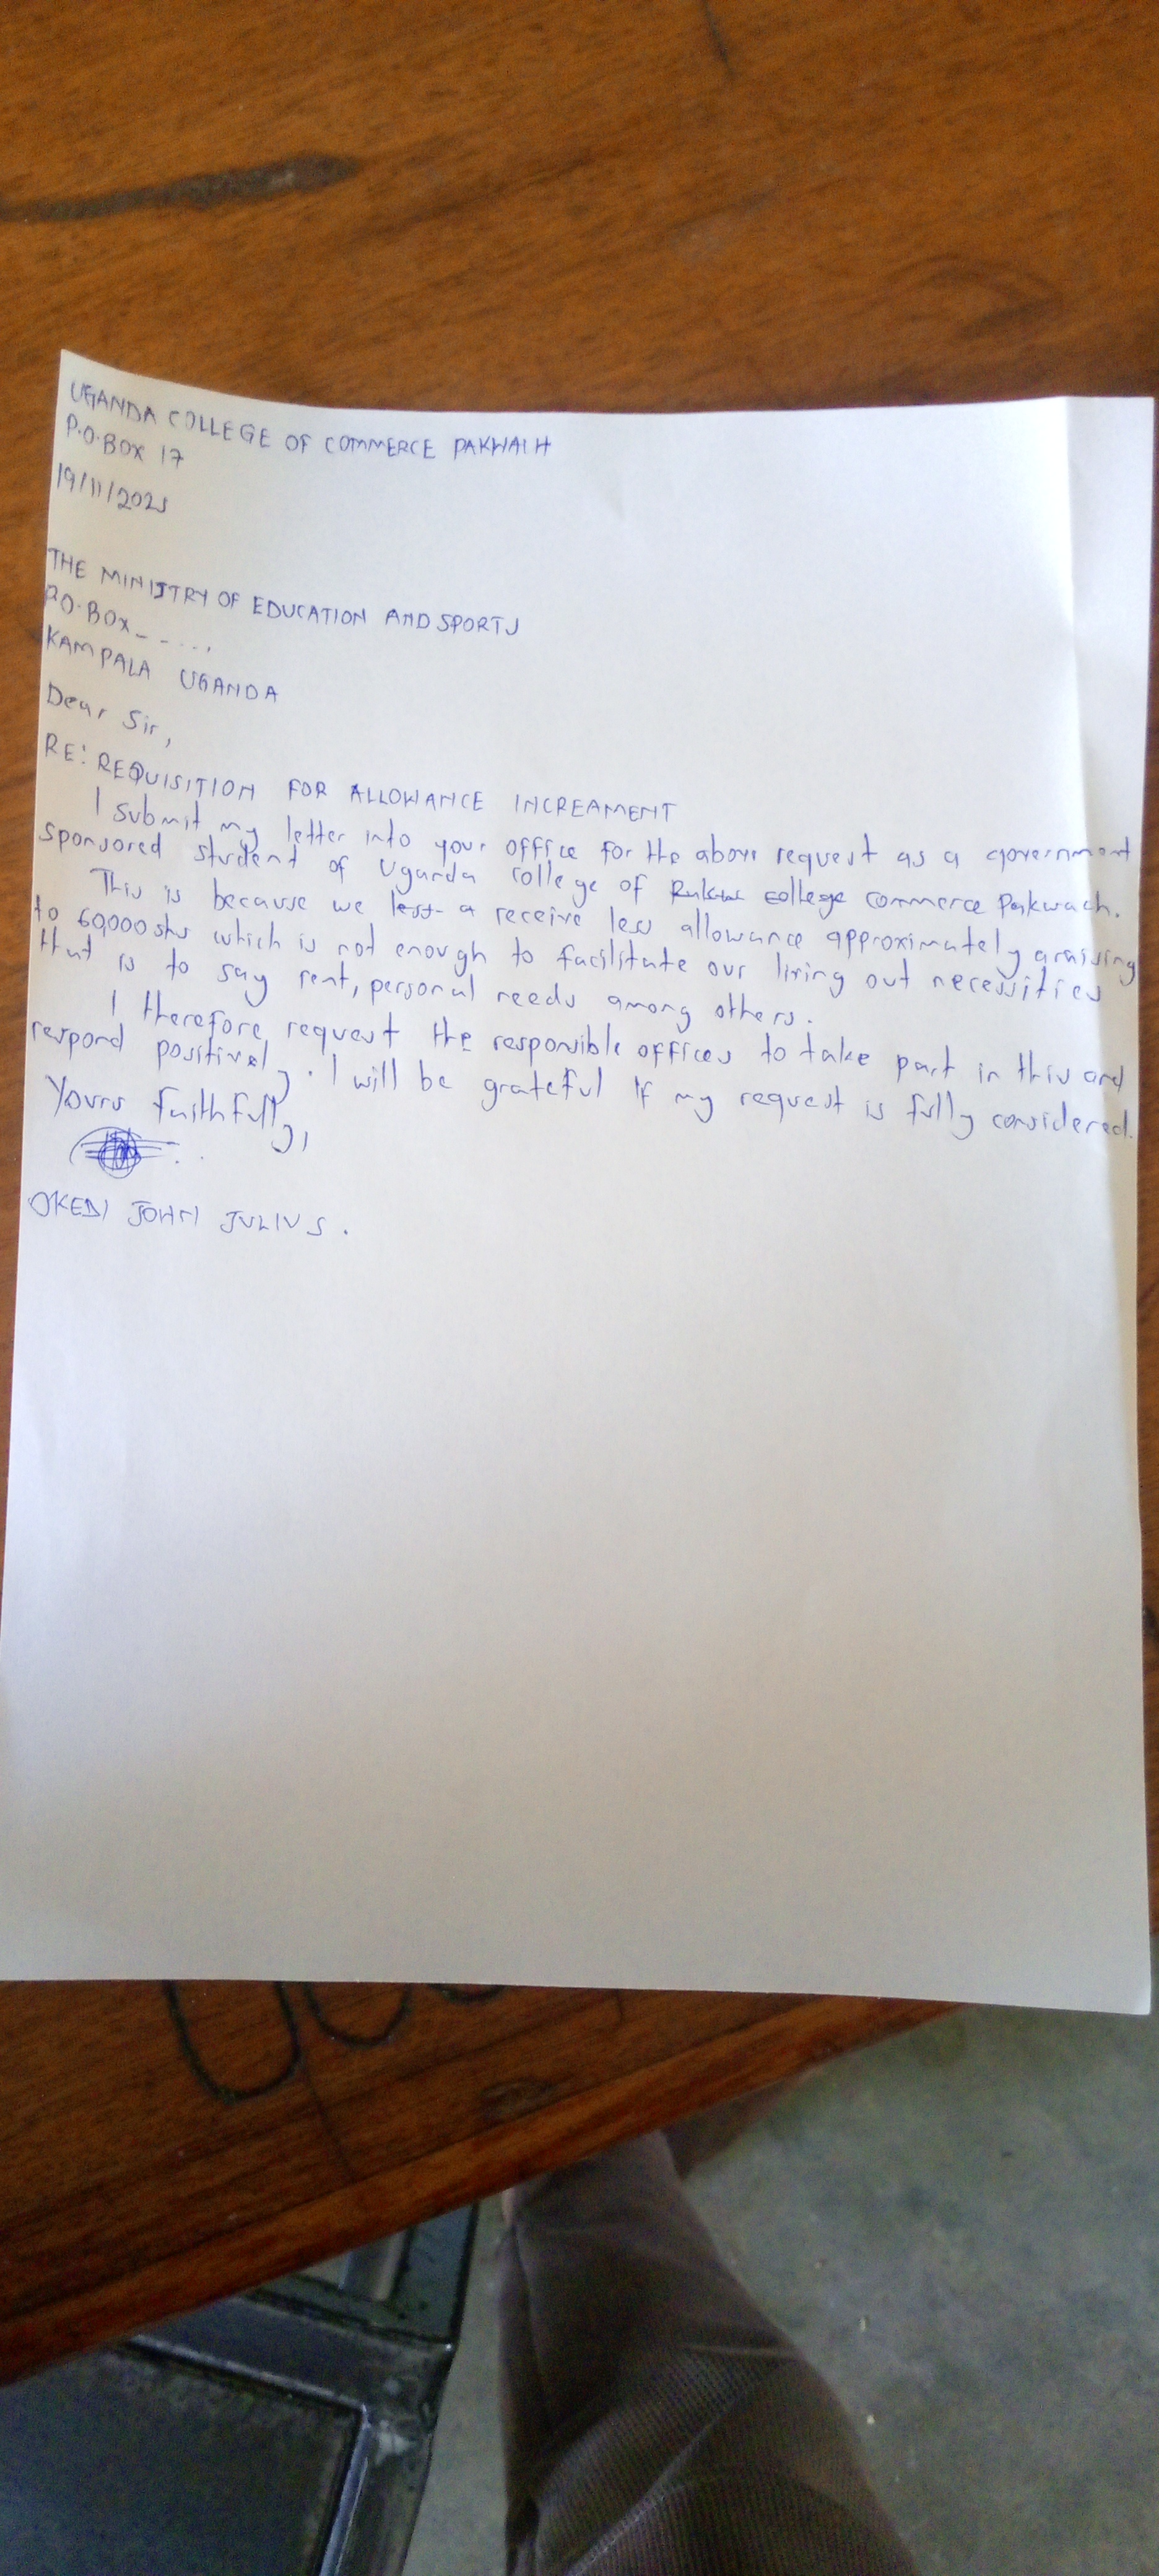 UGANDA COLLEGE OF COMMERCE PAKWACH
P.O.BOX 17
19/11/2025
THE MINISTRY OF EDUCATION AND SPORTS
P.O.BOX - - ....
KAMPALA UGANDA
Dear Sir,
RE: REQUISITION FOR ALLOWANCE INCREAMENT
I submit my letter into your office for the above request as a government
sponsored student of Uganda college of college commerce Pakwach.
This is because we less a receive less allowance approximately araising
to 60,000 shs which is not enough to facilitate our living out necessities
that is to say rent, personal needs among others.
I therefore request the responsible offices to take part in this and
respond positively. I will be grateful if my request is fully considered.
Yours faithfully,
OKEDI JOHN JULIUS.